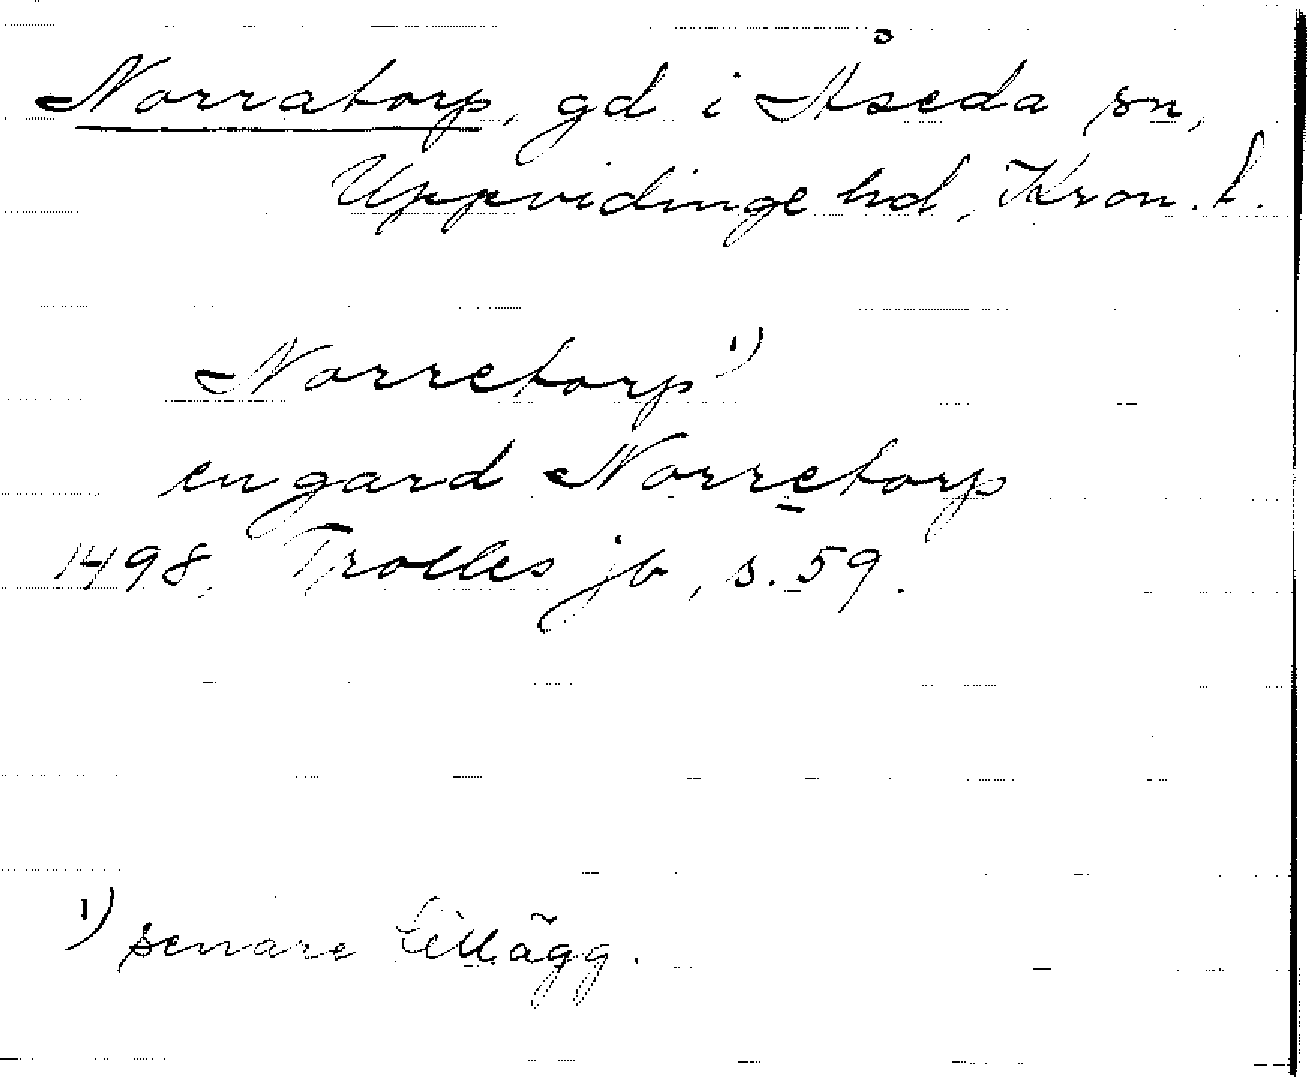 Norratorp, gd i Åseda sn,
Uppvidinge hd, Kron. l.
Norretorp ¹)
en gard Norretorp
1498, Trolles jb, s. 59.
¹) senare tillägg.